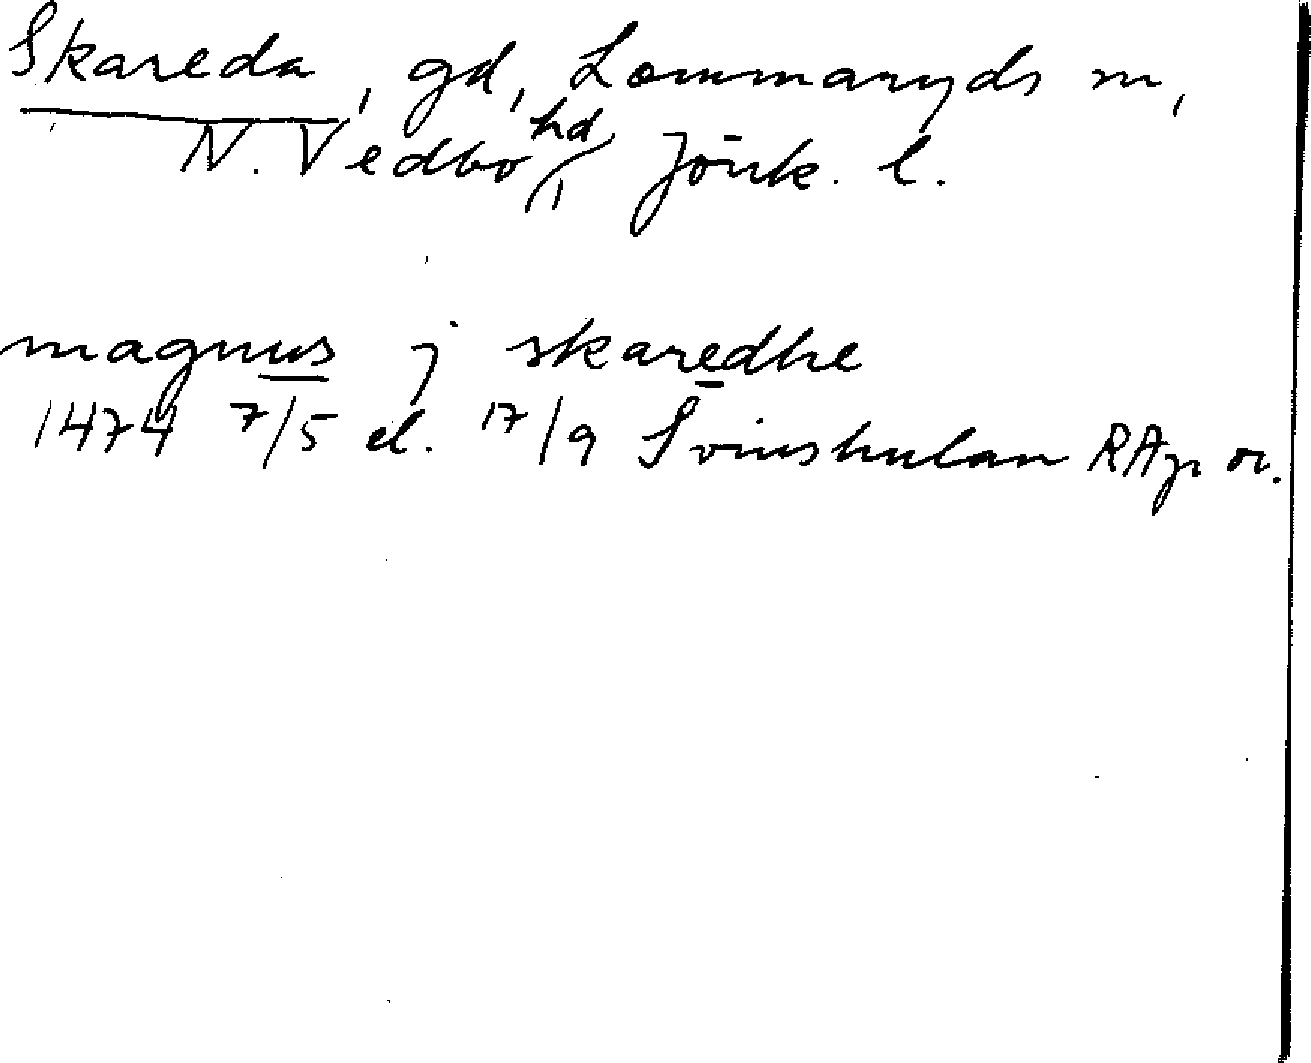 Skareda, gd, Lommaryds sn,
N. Vedbo hd, Jönk. l.
magnus j skaredhe
1474 7/5 el. 17/9 Svinshulan RAp or.